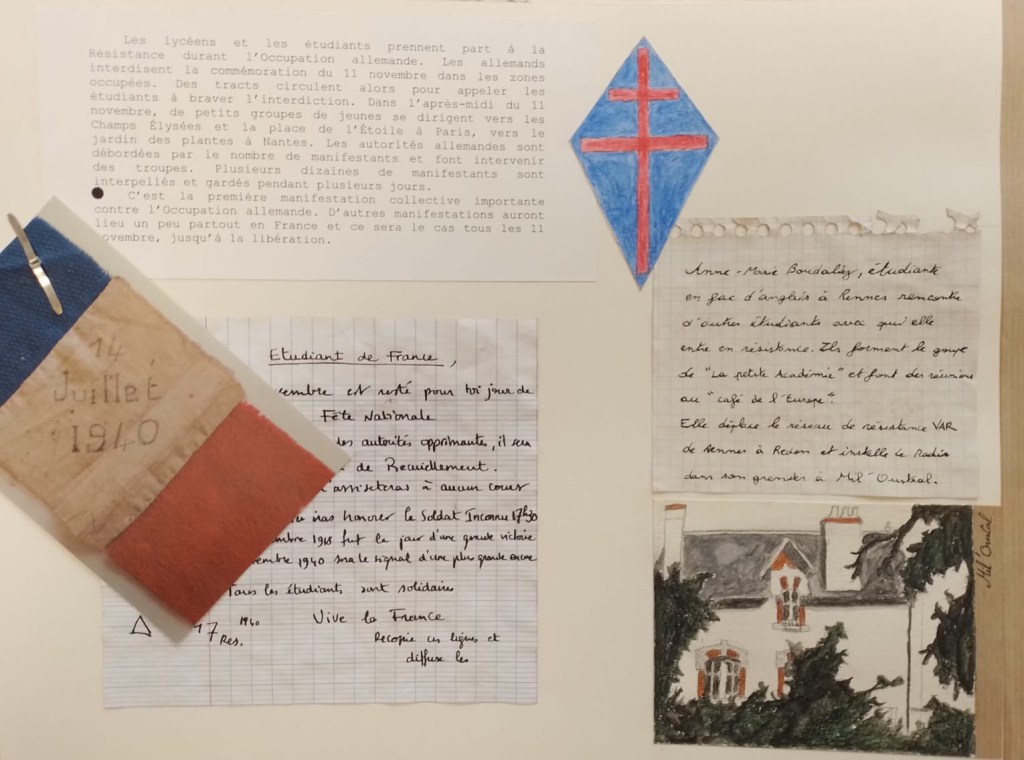 Les lycéens et les étudiants prennent part à la
Résistance durant l'Occupation allemande. Les allemands
interdisent la commémoration du 11 novembre dans les zones
occupées. Des tracts circulent alors pour appeler les
étudiants à braver l'interdiction. Dans l'après-midi du 11
novembre, de petits groupes de jeunes se dirigent vers les
Champs Élysées et la place de l'Étoile à Paris, vers le
jardin des plantes à Nantes. Les autorités allemandes sont
débordées par le nombre de manifestants et font intervenir
des troupes. Plusieurs dizaines de manifestants sont
interpellés et gardés pendant plusieurs jours.
C'est la première manifestation collective importante
contre l'Occupation allemande. D'autres manifestations auront
lieu un peu partout en France et ce sera le cas tous les 11
novembre, jusqu'à la libération.
14
Juillet
1940
Etudiant de France,
cembre est resté pour toi jour de
Fête Nationale
des autorités opprimantes, il sera
de Recueillement.
n'assisteras à aucun cours
iras honorer le Soldat Inconnu 17h30
embre 1918 fut le jour d'une grande victoire
vembre 1940 sera le signal d'une plus grande encore
Tous les étudiants sont solidaires
Vive la France
1940
17
Res.
Recopie ces lignes et
diffuse les
Anne-Marie, étudiante
en fac d'anglais à Rennes rencontre
d'autres étudiants avec qui elle
entre en résistance. Ils forment le groupe
de "La petite Académie" et font des réunions
au "café de l'Europe".
Elle déplace le réseau de résistance VAR
de Rennes à Redon et installe la Radio
dans son grenier à Mil'Oustal.
Mil'Oustal